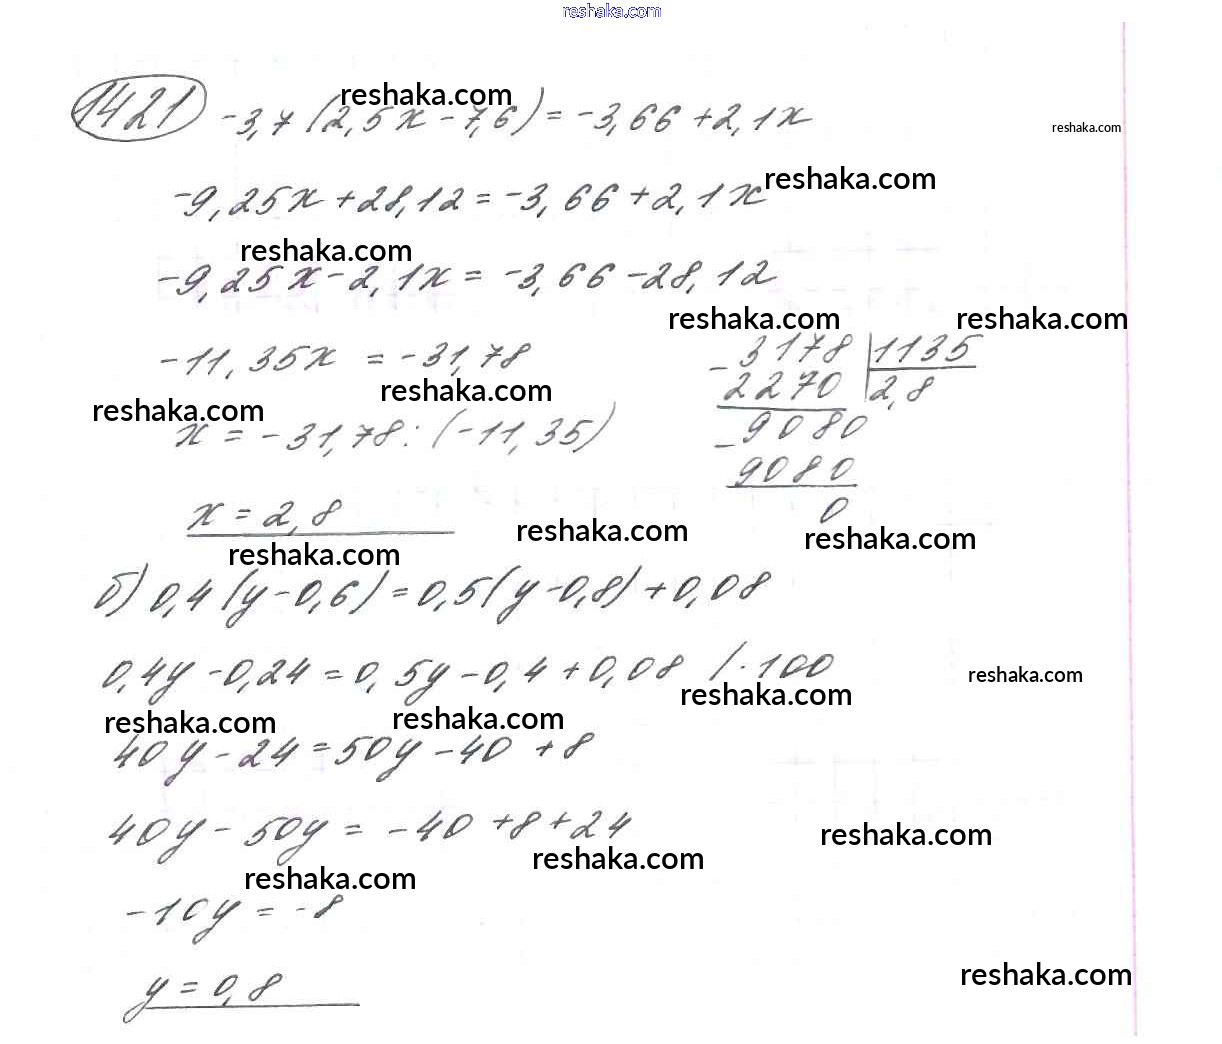 reshaka.com
1421 -3,7(2,5x-7,6)=-3,66+2,1x
reshaka.com
reshaka.com
-9,25x+28,12=-3,66+2,1x
reshaka.com
reshaka.com
-9,25x-2,1x=-3,66-28,12
reshaka.com
reshaka.com
-11,35x=-31,78
-3178|1135
reshaka.com
2270 2,8
reshaka.com
x=-31,78:(-11,35)
-9080
9080
x=2,8
0
reshaka.com
reshaka.com
reshaka.com
б) 0,4(y-0,6)=0,5(y-0,8)+0,08
0,4y-0,24=0,5y-0,4+0,08 /·100
reshaka.com
reshaka.com
reshaka.com
reshaka.com
40y-24=50y-40+8
40y-50y=-40+8+24
reshaka.com
reshaka.com
reshaka.com
-10y=-8
reshaka.com
y=0,8